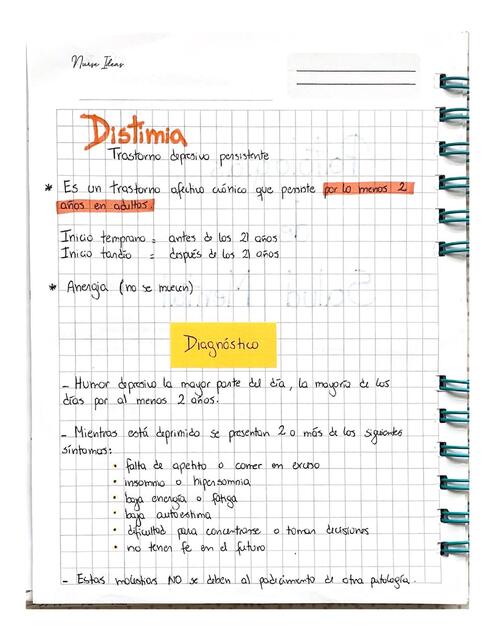 Nurse Ideas
Distimia
Trastorno depresivo persistente
* Es un trastorno afectivo crónico que persiste por lo menos 2
años en adultos.
Inicio temprano = antes de los 21 años
Inicio tardío = después de los 21 años
* Anergia (no se mueven)
Diagnóstico
- Humor depresivo la mayor parte del día, la mayoría de los
días por al menos 2 años.
- Mientras está deprimido se presentan 2 o más de los siguientes
síntomas:
• falta de apetito o comer en exceso
• insomnio o hipersomnia
• baja energía o fatiga
• baja autoestima
• dificultad para concentrarse o tomar decisiones
• no tener fe en el futuro
- Estas molestias NO se deben al padecimiento de otra patología.